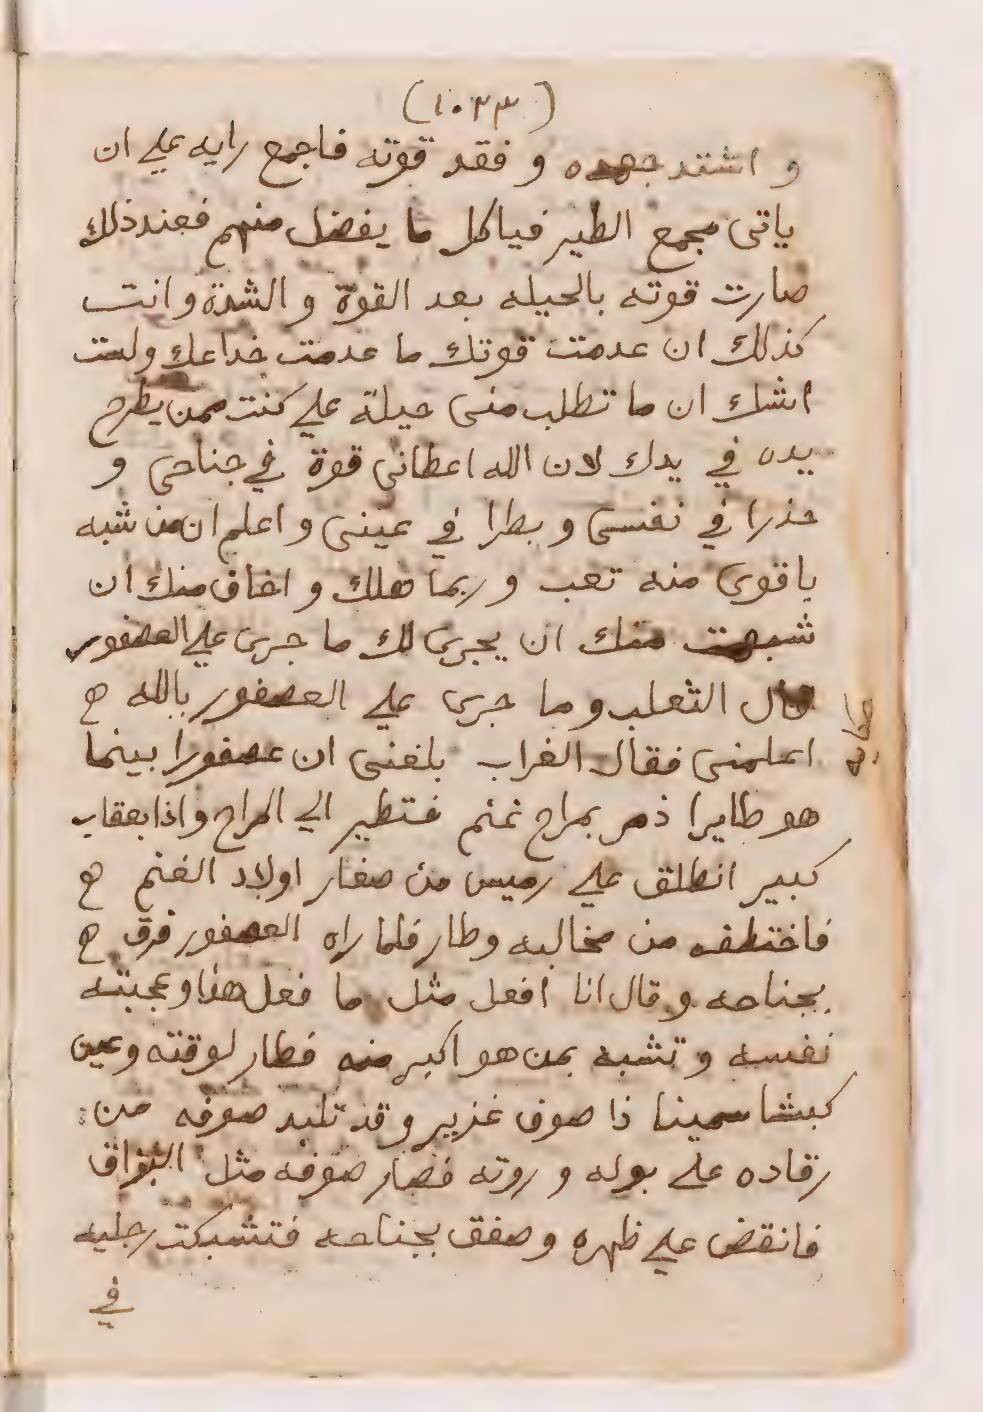 (١٠٣٣)
و اشتد جهده و فقد قوته فاجمع رايه علي ان
ياتى مجمع الطير فياكل ما يفضل منهم فعند ذلك
صارت قوته بالحيله بعد القوة و الشدة و انت
كذلك ان عدمت قوتك ما عدمت خداعك ولست
اشك ان ما تطلب منى حيلة علي كنت ممن يطرح
يده في يدك لان الله اعطانى قوة في جناحى و
حذرا في نفسى و بطرا في عينى و اعلم ان من شبه
باقوى منه تعب و ربما هلك و اخاف منك ان
شبهت منك ان يجرى لك ما جرى علي العصفور
قال الثعلب و ما جرى علي العصفور بالله ھ
اعلمنى فقال الغراب بلغنى ان عصفورا بينما
هو طايرا ذمر بمراح غنم فتطير الي المراح و اذا بعقاب
كبير انطلق علي رميس من صغار اولاد الغنم ھ
فاختطفه من مخالبه وطار فلما راه العصفور فرق ھ
بجناحه و قال انا افعل مثل ما فعل هذا و عجبته
نفسه و تشبه بمن هو اكبر منه فطار لوقته و عين
كبشا سمينا ذا صوف غزير و قد تلبد صوفه من
رقاده علي بوله و روثه فصار صوفه مثل
فانقض علي ظهره و صفق بجناحه فتشبكت رجليه
في